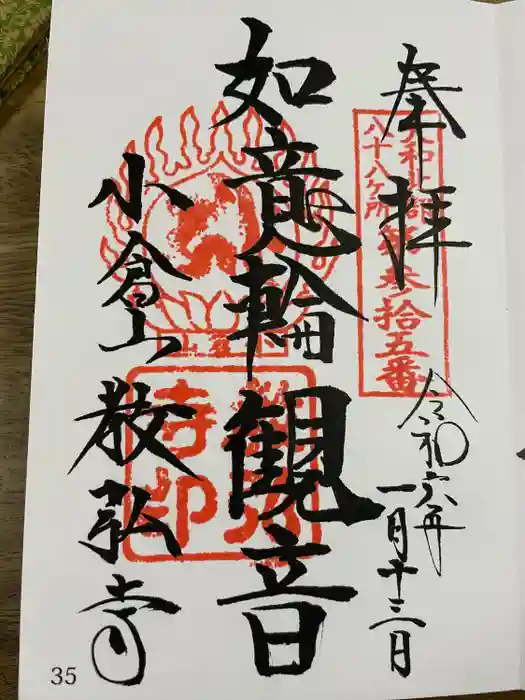 奉拝
大和北部
八十八ヶ所
第参拾五番
令和六年
一月十三日
如意輪観音
小倉山
教弘寺
35